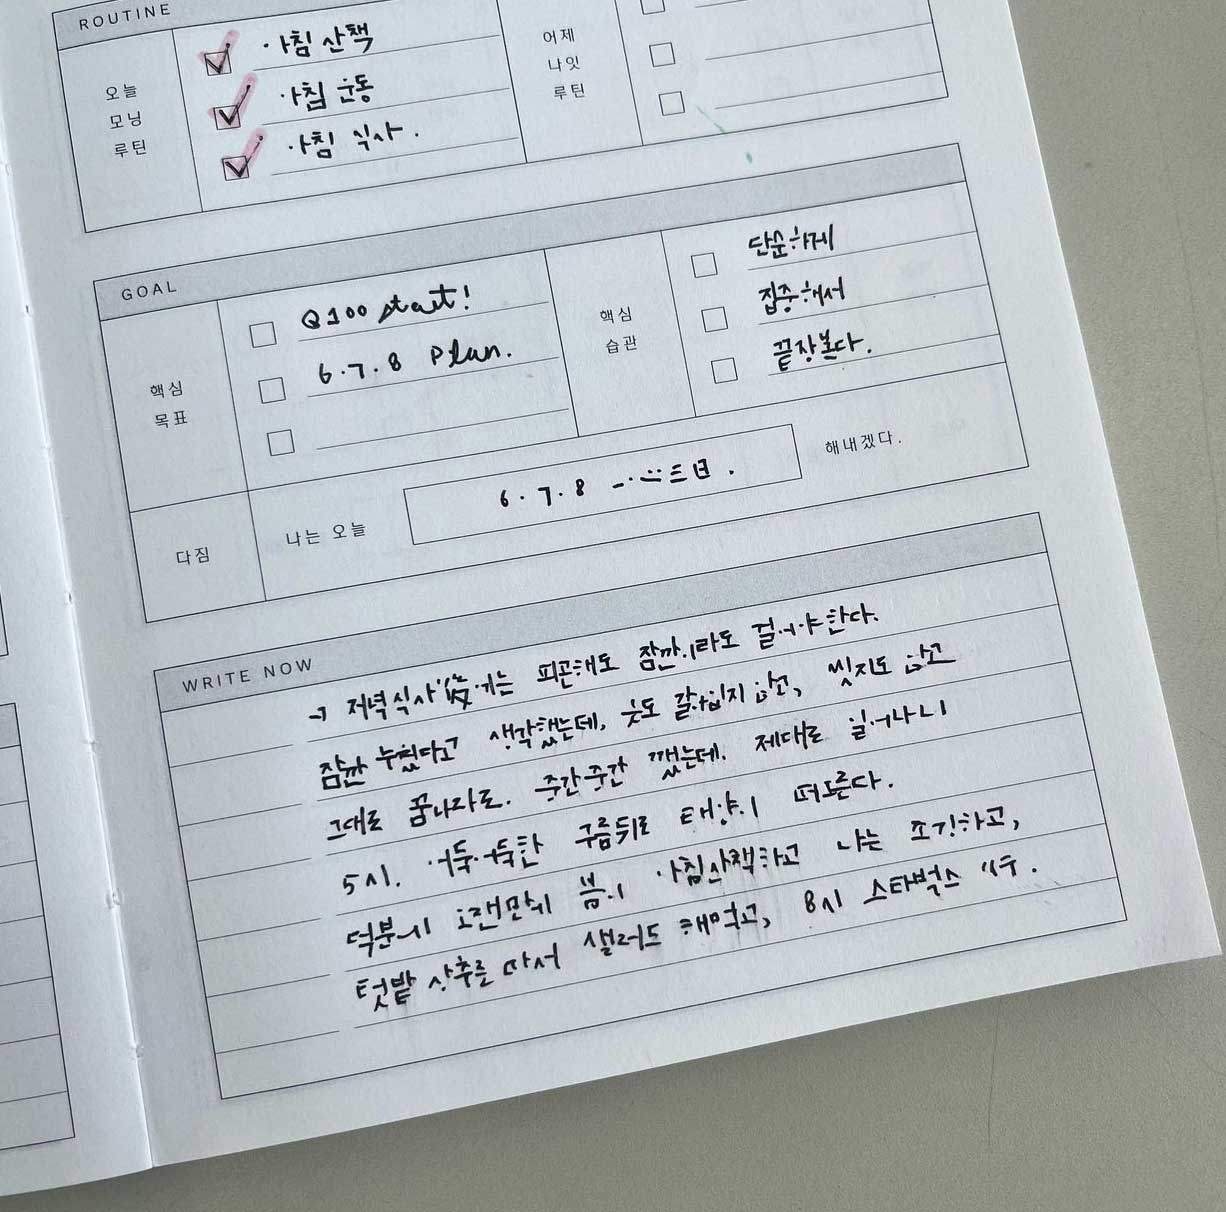 ROUTINE
오늘
모닝
루틴
아침 산책
아침 운동
아침 식사.
어제
나잇
루틴
GOAL
핵심
목표
Q100 start!
6.7.8 Plan.
핵심
습관
단순하게
집중해서
끝장본다.
다짐
나는 오늘
6.7.8
해내겠다.
WRITE NOW
→ 저녁식사 後에는 피곤해도 잠깐이라도 걸어야 한다.
잠깐 누웠다고 생각했는데, 옷도 갈아입지 않고, 씻지도 않고
그대로 꿈나라로. 중간중간 깼는데. 제대로 일어나니
5시. 어둑어둑한 구름뒤로 태양이 떠오른다.
덕분에 오랜만에 봄이 아침산책하고 나는 조깅하고,
텃밭 상추를 따서 샐러드 해먹고, 8시 스타벅스